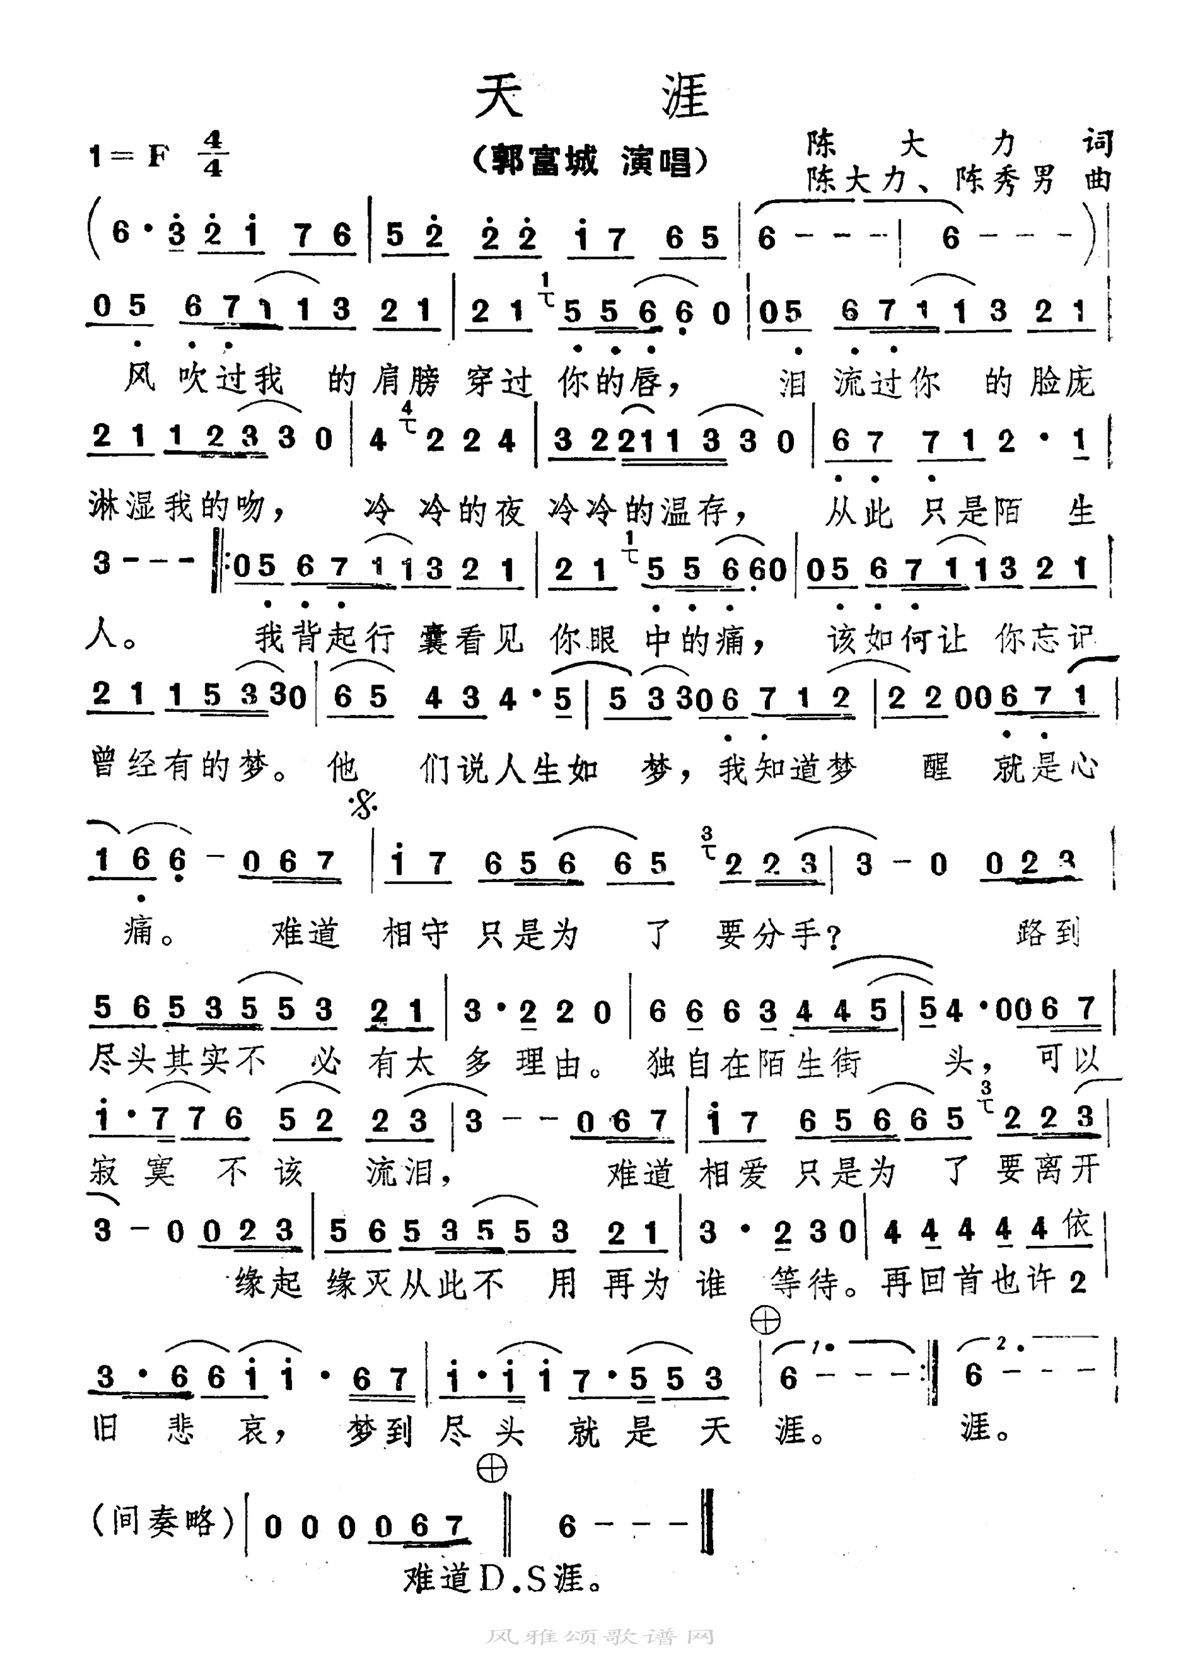 天 涯
1=F 4/4
(郭富城 演唱)
陈大力 词
陈大力、陈秀男 曲
(6·3 2 1 7 6 | 5 2 2 2 1 7 6 5 | 6 - - - | 6 - - - )
0 5 6 7 1 1 3 2 1 | 2 1 1 5 5 6 6 0 | 0 5 6 7 1 1 3 2 1 |
风 吹过我 的肩膀 穿过 你的唇， 泪 流过你 的脸庞
2 1 1 2 3 3 0 | 4 4 2 2 4 | 3 2 2 1 1 3 3 0 | 6 7 7 1 2 · 1 |
淋湿我的吻， 冷 冷的夜 冷冷的温存， 从此 只是陌 生
3 - - - ‖: 0 5 6 7 1 1 3 2 1 | 2 1 1 5 5 6 6 0 | 0 5 6 7 1 1 3 2 1 |
人。 我背起行 囊看见 你眼 中的痛， 该如何让 你忘记
2 1 1 5 3 3 0 | 6 5 4 3 4 · 5 | 5 3 3 0 6 7 1 2 | 2 2 0 0 6 7 1 |
曾经有的梦。 他 们说人生如 梦， 我知道梦 醒 就是心
1 6 6 - 0 6 7 | 1 7 6 5 6 6 5 3 2 2 3 | 3 - 0 0 2 3 |
痛。 难道 相守 只是为 了 要分手? 路到
5 6 5 3 5 5 3 2 1 | 3 · 2 2 0 | 6 6 6 3 4 4 5 | 5 4 · 0 0 6 7 |
尽头其实不 必 有太 多 理由。 独自在陌生街 头， 可以
1 · 7 7 6 5 2 2 3 | 3 - - 0 6 7 | 1 7 6 5 6 6 5 3 2 2 3 |
寂 寞 不 该 流泪， 难道 相爱 只是为 了 要离开
3 - 0 0 2 3 | 5 6 5 3 5 5 3 2 1 | 3 · 2 3 0 | 4 4 4 4 4 依
缘起 缘灭从此不 用 再为 谁 等待。 再回首也许 2
3 · 6 6 1 1 · 6 7 | 1 · 1 1 7 · 5 5 3 | 1. 6 - - - :‖ 2. 6 - - -
旧 悲 哀， 梦到 尽 头 就 是 天 涯。 涯。
(间奏略) | 0 0 0 0 6 7 ‖ 6 - - - ‖
难道D.S涯。
风雅颂歌谱网